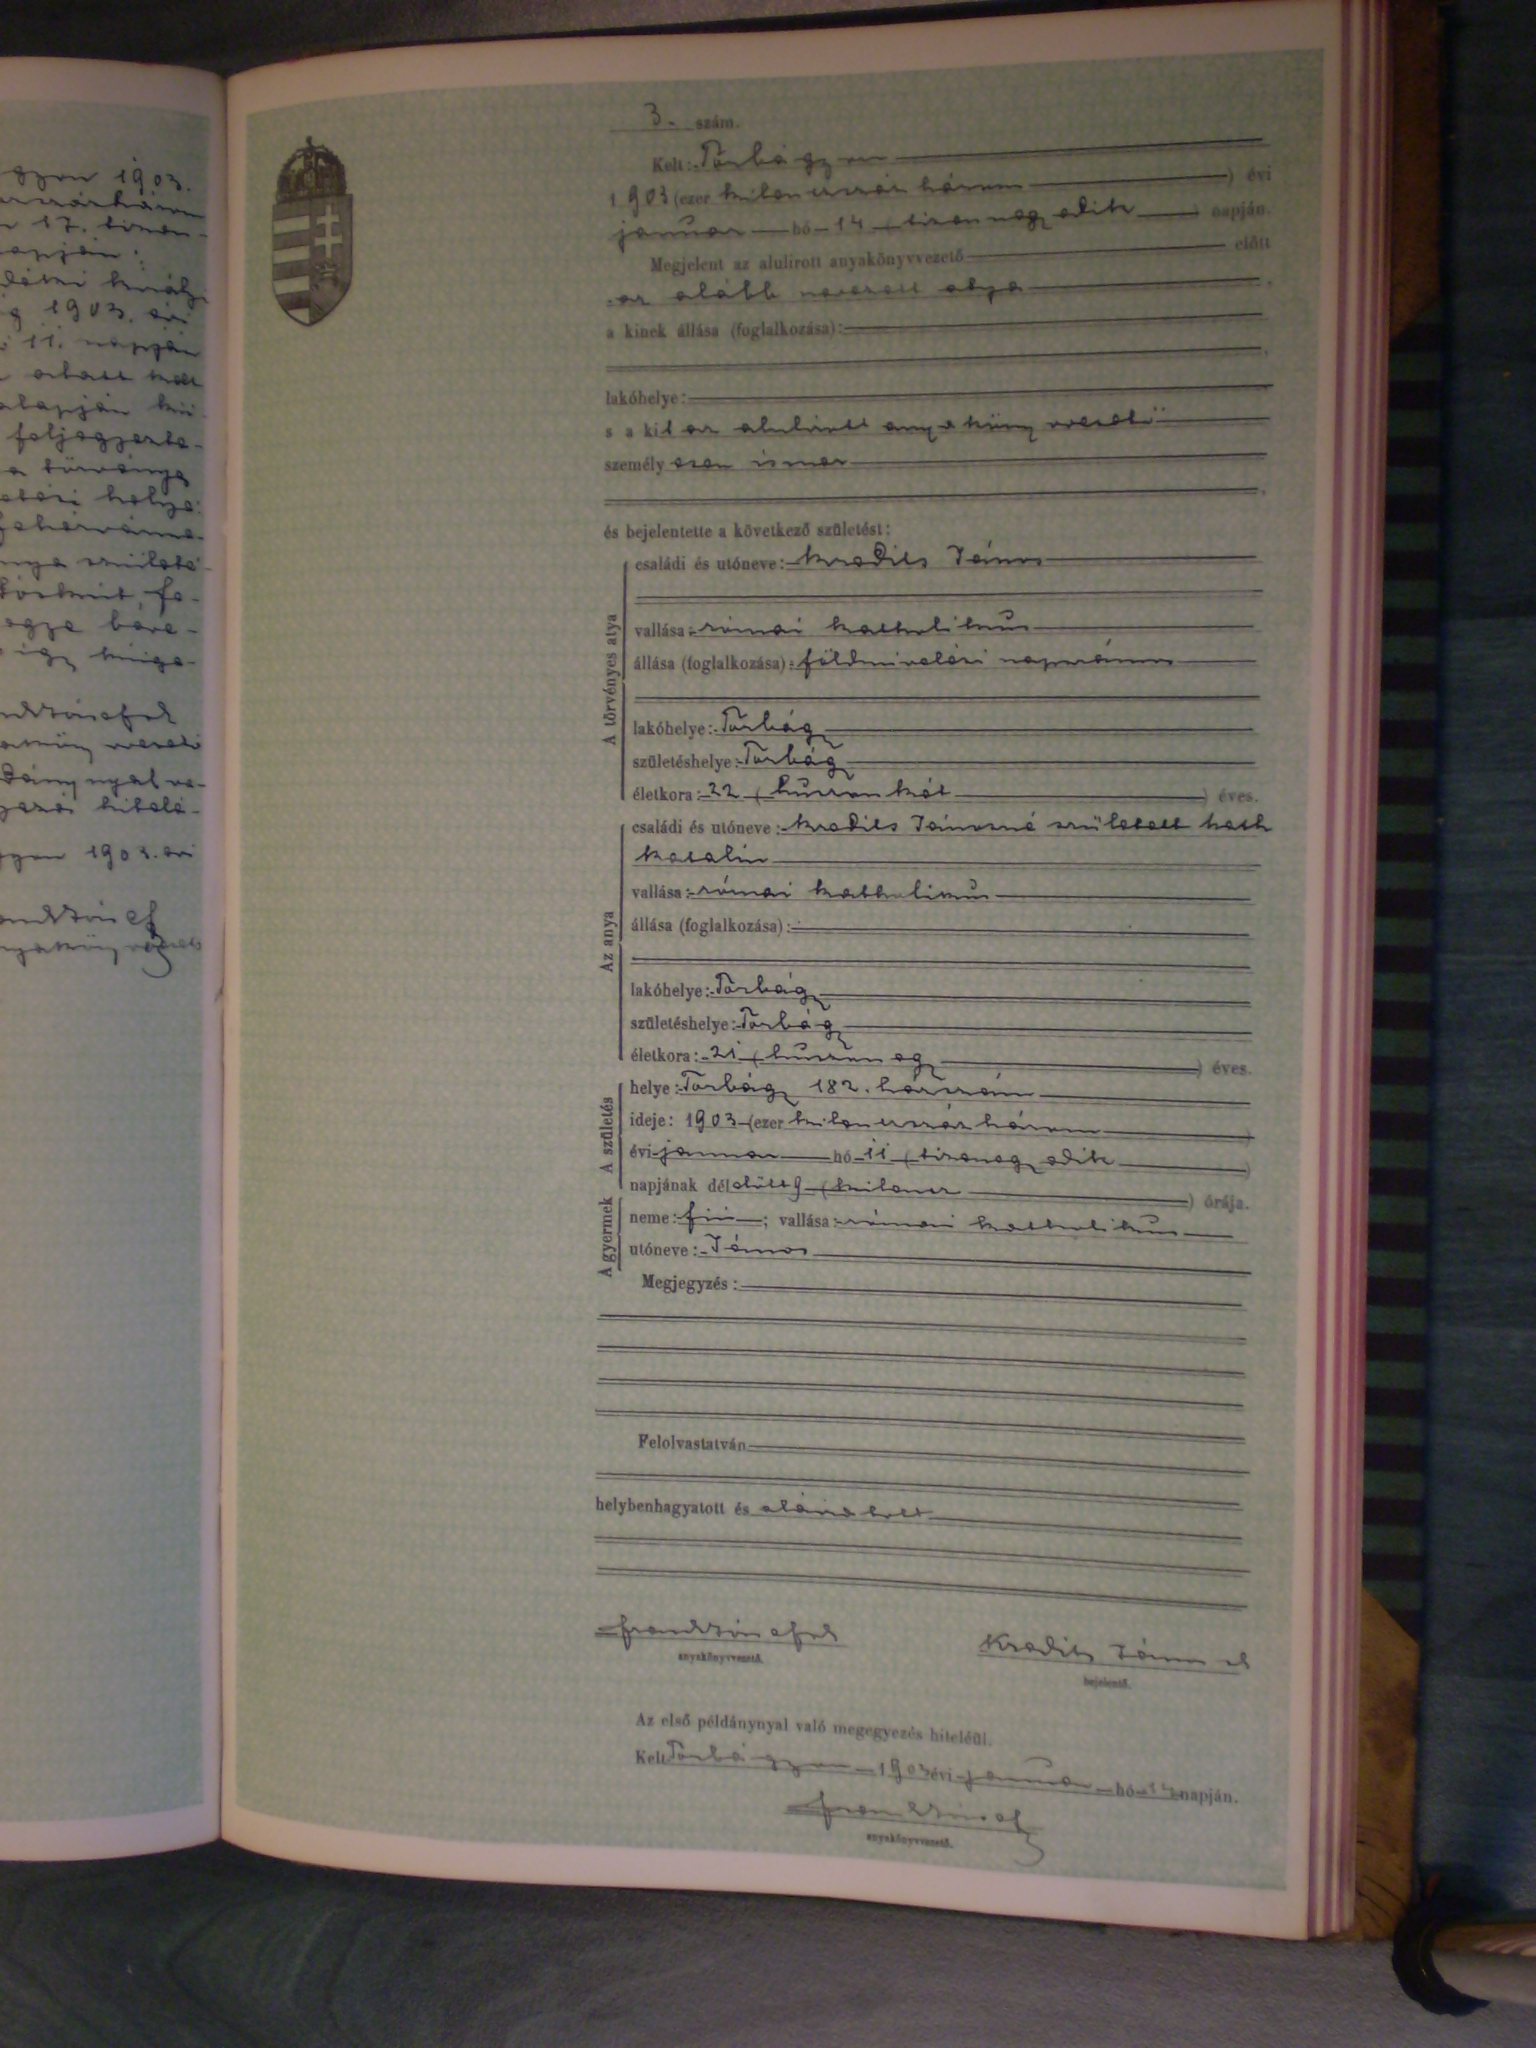 gyon 1903.
17. tizen-
napján:
királyi
1903. évi
11. napján
alatt kelt
alapján
feljegyezte-
a törvénye
helye:
3. szám.
Kelt: Torbágyon
1903 (ezer kilenczszázhárom) évi
január hó 14 (tizennegyedik) napján.
Megjelent az alulirott anyakönyvvezető előtt
az alább nevezett atya,
a kinek állása (foglalkozása):
lakóhelye:
s a kit az alulirott anyakönyvvezető
személyesen ismer
és bejelentette a következő születést:
A törvényes atya
családi és utóneve: Kradits János
vallása: római katholikus
állása (foglalkozása): földmivelési napszámos
lakóhelye: Torbágy
születéshelye: Torbágy
életkora: 22 (huszonkét) éves.
Az anya
családi és utóneve: Kradits Jánosné született
Katalin
vallása: római katholikus
állása (foglalkozása):
lakóhelye: Torbágy
születéshelye: Torbágy
életkora: 21 (huszonegy) éves.
A születés
helye: Torbágy 182. házszám
ideje: 1903 (ezer kilenczszázhárom)
évi január hó 11 (tizenegyedik)
napjának délelőtt 9 (kilencz) órája.
A gyermek
neme: fiú; vallása: római katholikus
utóneve: János
Megjegyzés:
Felolvastatván
helybenhagyatott és aláiratott
anyakönyvvezető.
Kradits János
bejelentő.
Az első példánynyal való megegyezés hiteléül.
Kelt Torbágyon 1903 évi január hó 14 napján.
anyakönyvvezető.